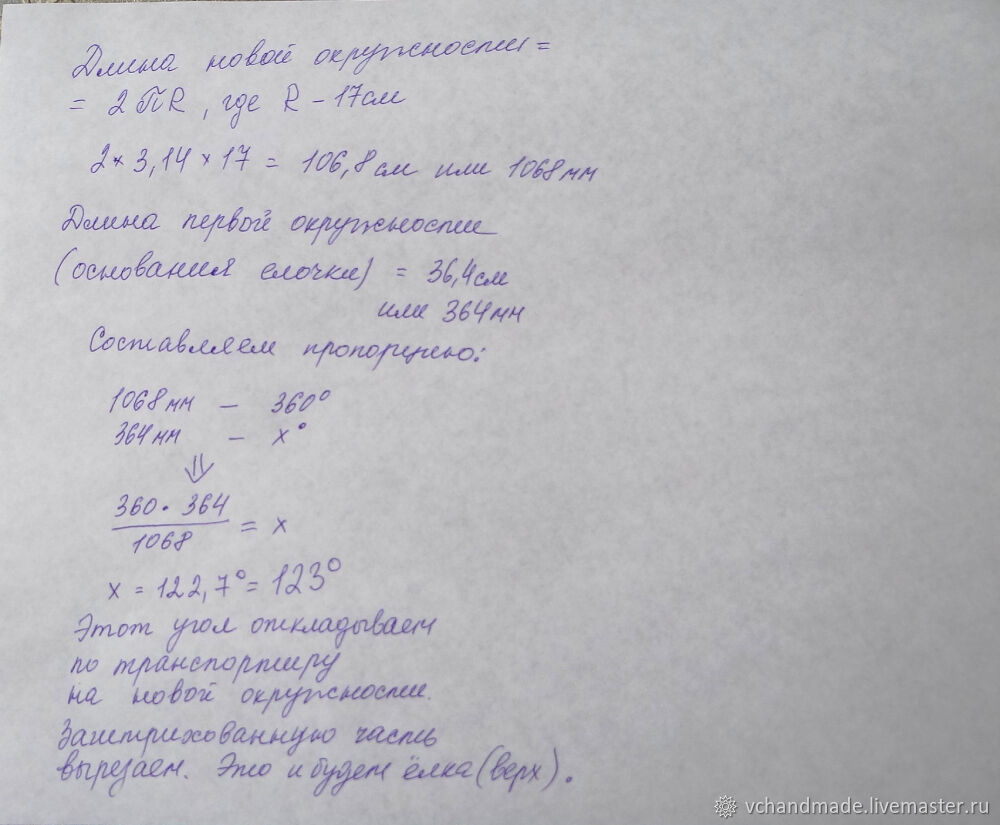 Длина новой окружности =
= 2πR, где R – 17см
2 × 3,14 × 17 = 106,8см или 1068мм
Длина первой окружности
(основания елочки) = 36,4см
или 364мм
Составляем пропорцию:
1068мм – 360°
364мм – x°
⇓
360 · 364
1068
= x
x = 122,7° = 123°
Этот угол откладываем
по транспортиру
на новой окружности.
Заштрихованную часть
вырезаем. Это и будет ёлка (верх).
vchandmade.livemaster.ru